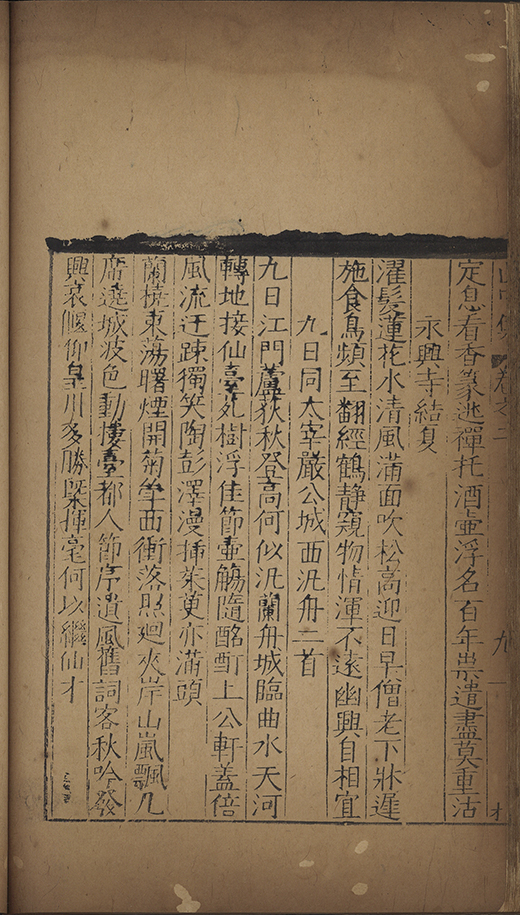 定息看香篆逃禪托酒壺浮名百年祟遣盡莫重沽
永興寺結夏
濯髮蓮花水清風滿面吹松高迎日早僧老下牀遲
施食鳥頻至翻經鶴静窺物情渾不遠幽興自相宜
九日同太宰嚴公城西汎舟二首
九日江門蘆荻秋登高何似汎蘭舟城臨曲水天河
轉地接仙臺丸樹浮佳節壺觴隨酩酊上公軒蓋倍
風流迂踈獨笑陶彭澤漫揷茱萸亦滿頭
蘭橈東蕩曙煙開菊𥬇西衝落照迴夾岸山嵐飄几
席遶城波色動樓臺都人節序遺風舊詞客秋吟發
興哀偃仰皇川多勝槩揮毫何以繼仙才
卷之二
九